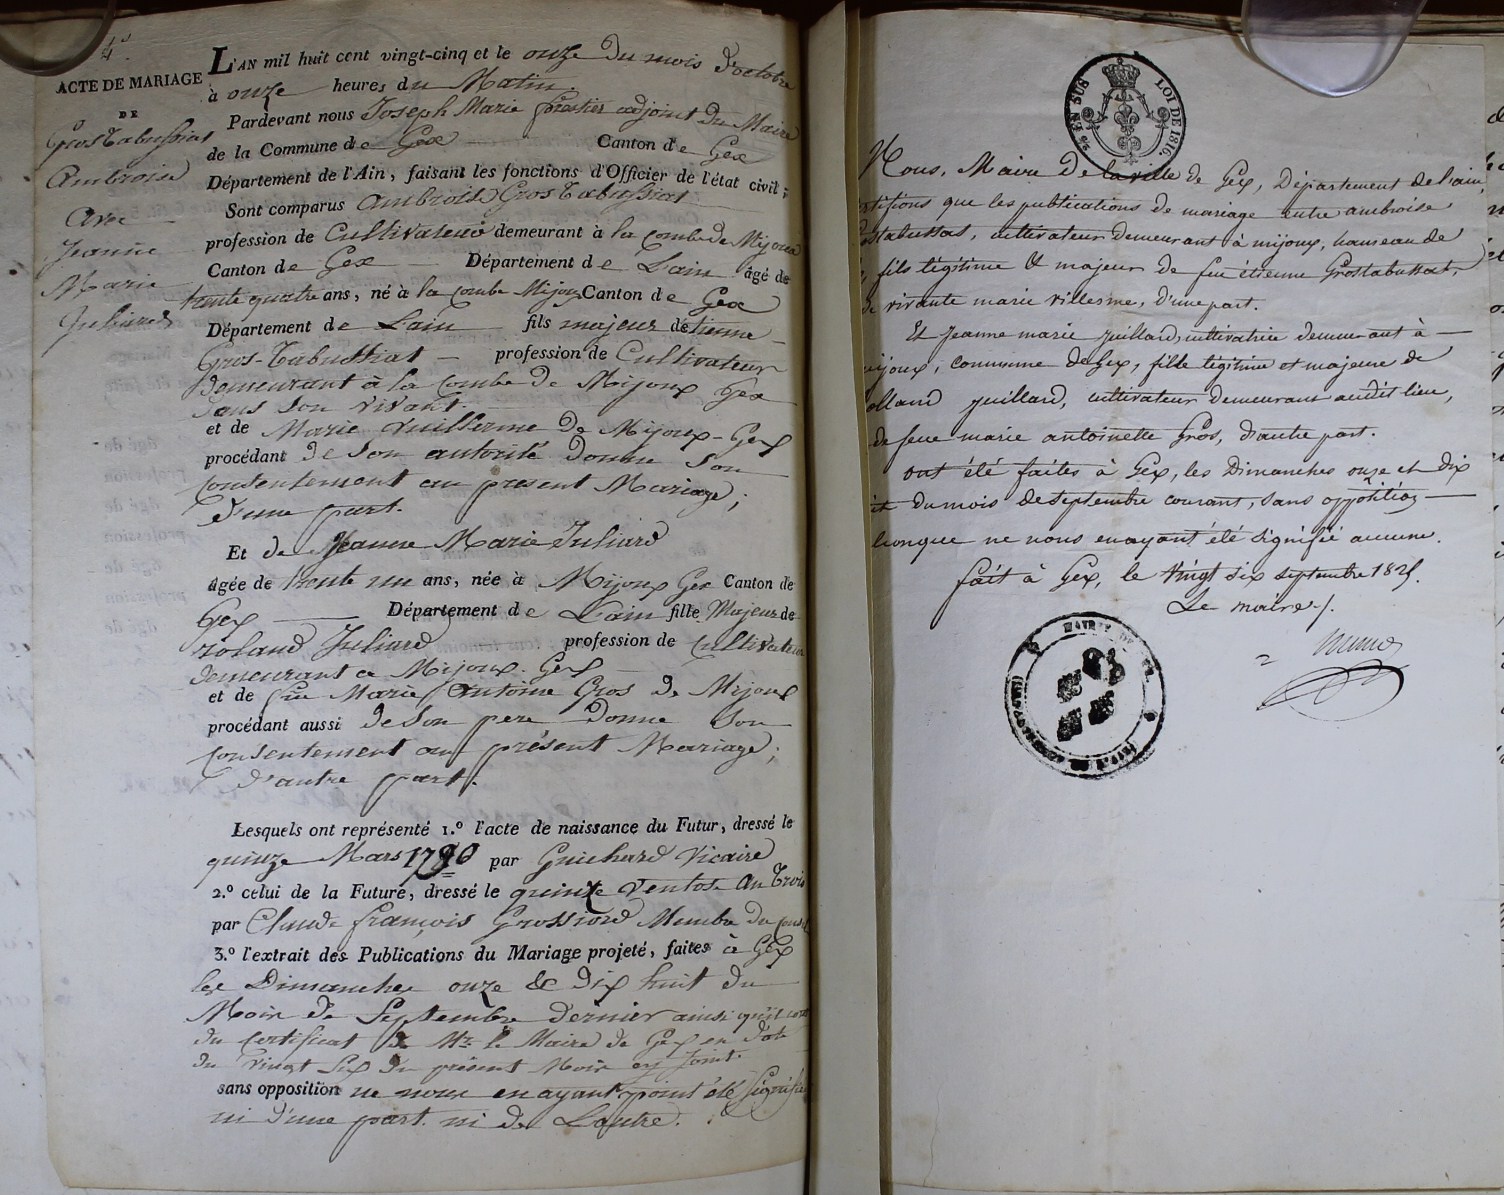 4.e
ACTE DE MARIAGE
DE
Gros Tabussiat
Ambroise
Avec
Jeanne
Marie
Juliard
L'AN mil huit cent vingt-cinq et le onze du mois d'octobre
à onze heures du Matin
Pardevant nous Joseph Marie adjoint du Maire
de la Commune de Gex Canton de Gex
Département de l'Ain, faisant les fonctions d'Officier de l'état civil ;
Sont comparus Ambroise Gros Tabussiat
profession de Cultivateur demeurant à la Combe de Mijoux
Canton de Gex Département de Lain âgé de
trente quatre ans, né à la Combe Mijoux Canton de Gex
Département de Lain fils majeur détienne
Gros-Tabussiat profession de Cultivateur
demeurant à la Combe de Mijoux Gex
dans son vivant.
et de Marie Vuillerme de Mijoux-Gex
procédant de son autorité donne son
Consentement au present Mariage ;
d'une part.
Et de Jeanne Marie Juliard
âgée de trente un ans, née à Mijoux Gex Canton de
Gex Département de Lain fille Majeur de
roland Juliard profession de Cultivateur
demeurant a Mijoux. Gex
et de feu Marie Antoine Gros de Mijoux
procédant aussi de son pere donne son
Consentement au présent Mariage ;
d'autre part.
Lesquels ont représenté 1.º l'acte de naissance du Futur, dressé le
quinze Mars 1790 par Guichard Vicaire
2.º celui de la Future, dressé le quinze Ventose An Trois
par Claude françois Grossiord Membre du
3.º l'extrait des Publications du Mariage projeté, faites à Gex
les Dimanches onze & dix huit du
Mois de Septembre dernier ainsi qu'il
du Certificat de Mr. le Maire de Gex en date
du vingt six du présent Mois cy joint.
sans opposition ne nous en ayant point été Signifié
ni d'une part. ni de Lautre.
5 EN SUS LOI DE 1816.
Nous, Maire de la ville de Gex, Département de l'ain,
que les publications de mariage entre ambroise
, cultivateur demeurant à mijoux, hameau de
, fils légitime & majeur de feu étienne Grostabussat,
de vivante marie villerme, d'une part.
Et jeanne marie juillard, cultivatrice demeurant à
, commune de Gex, fille légitime et majeure de
juillard, cultivateur demeurant audit lieu,
de feue marie antoinette Gros, d'autre part.
ont été faites à Gex, les Dimanches onze et dix
du mois de septembre courant, sans opposition
ne nous en ayant été signifié aucune.
fait à Gex, le vingt six septembre 1825.
Le maire.